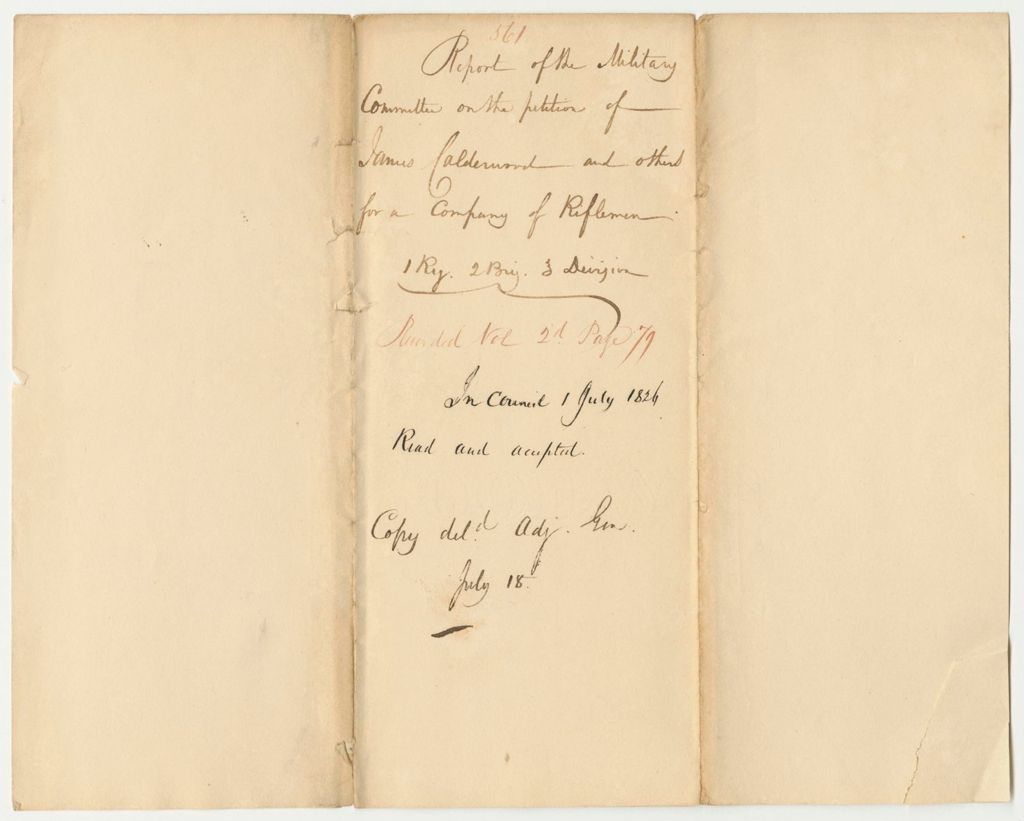 561
Report of the Military
Committee on the petition of
James Calderwood and others
for a Company of Riflemen
1 Reg. 2 Brig. 3 Division
Recorded Vol 2d Page 79
In Council 1 July 1826
Read and accepted.
Copy deld Adj. Gen.
July 18.